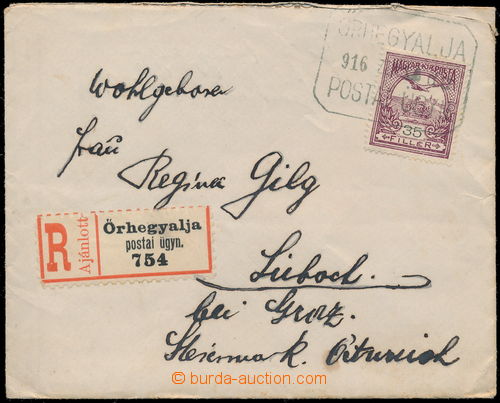 ŐRHEGYALJA
916
POSTAI ÜGYN.
MAGYAR KIR. POSTA
35
FILLER
Wohlgeboren
Frau
Regina Gilg
R Ajánlott
Őrhegyalja
postai ügyn.
754
Lieboch.
bei Graz.
Steiermark. Österreich
© burda-auction.com